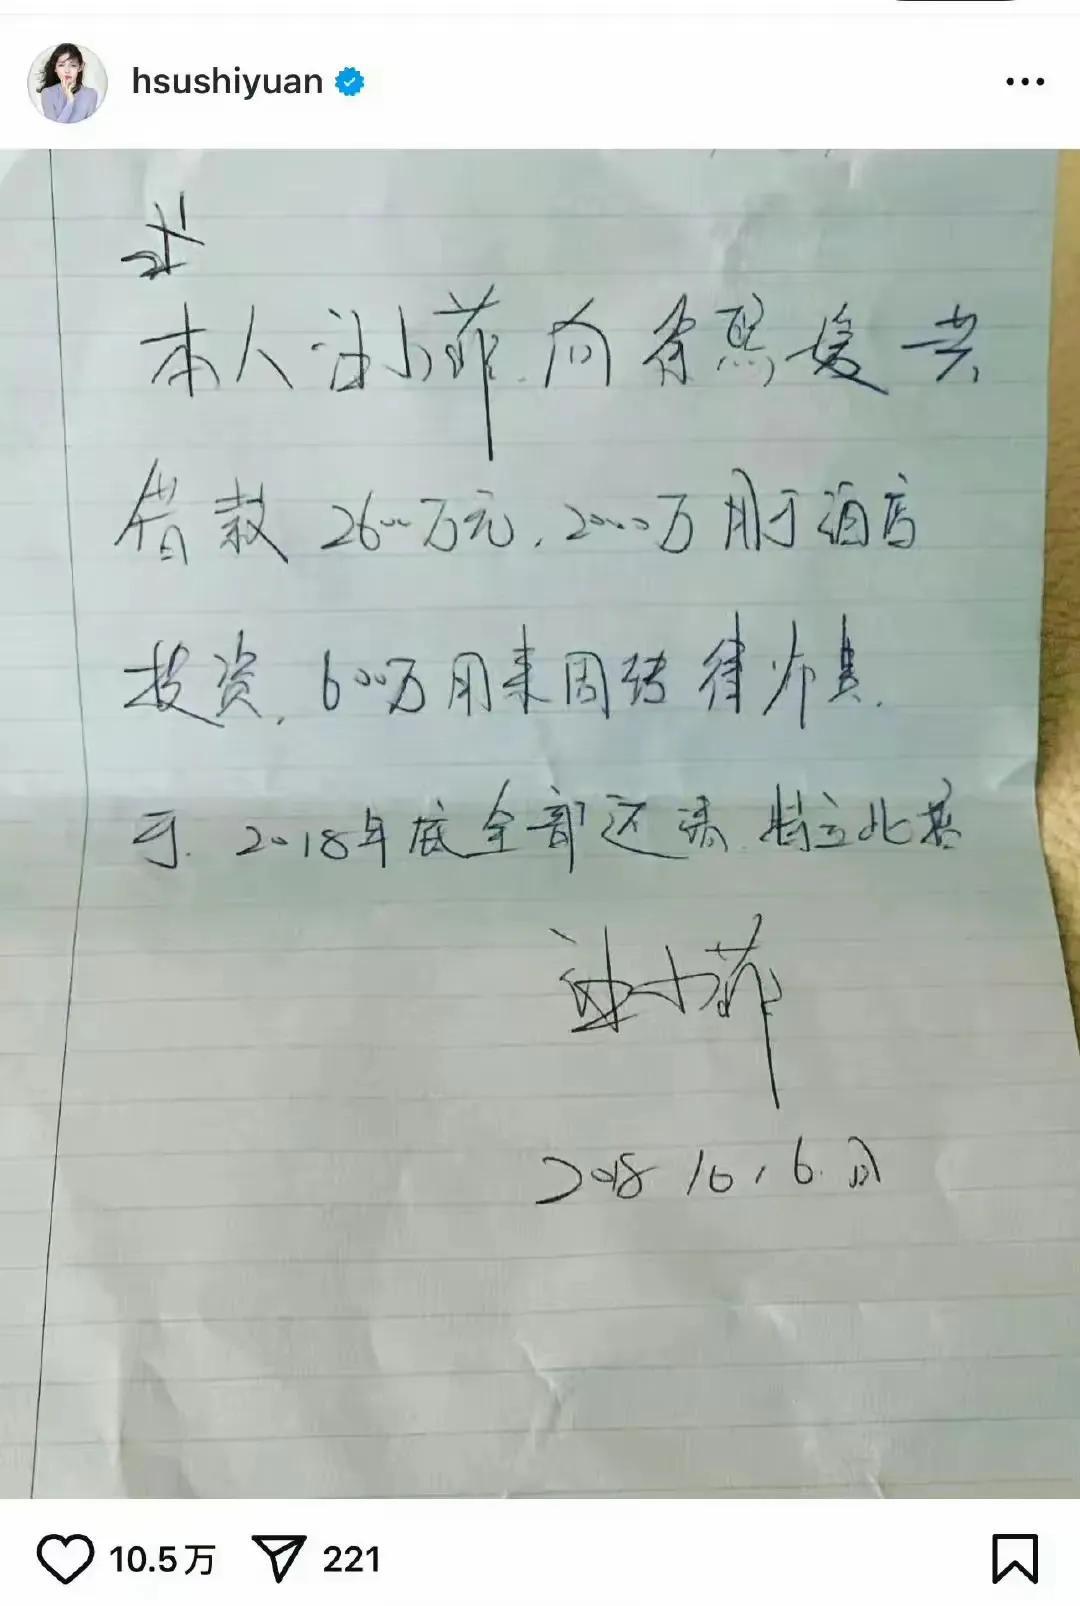 hsushiyuan
本人汪小菲向徐熙媛共
借款2600万元，2000万用于酒店
投资，600万用来周转律师费.
于.2018年底全部还清.特立此据
汪小菲
2018 10，6.
10.5万 221